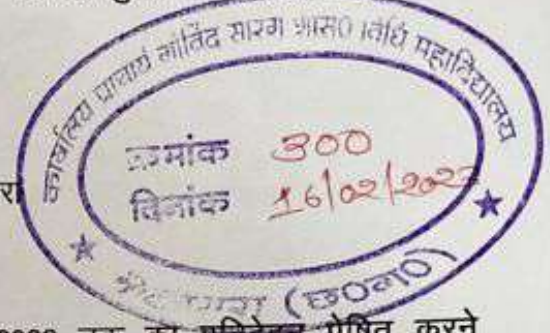 कार्यालय प्राचार्य गोविंद सारंग शास0 विधि महाविद्यालय
क्रमांक 300
दिनांक 16/02/2023
रा
(छ0ग0)
तक का प्रतिवेदन प्रेषित करने